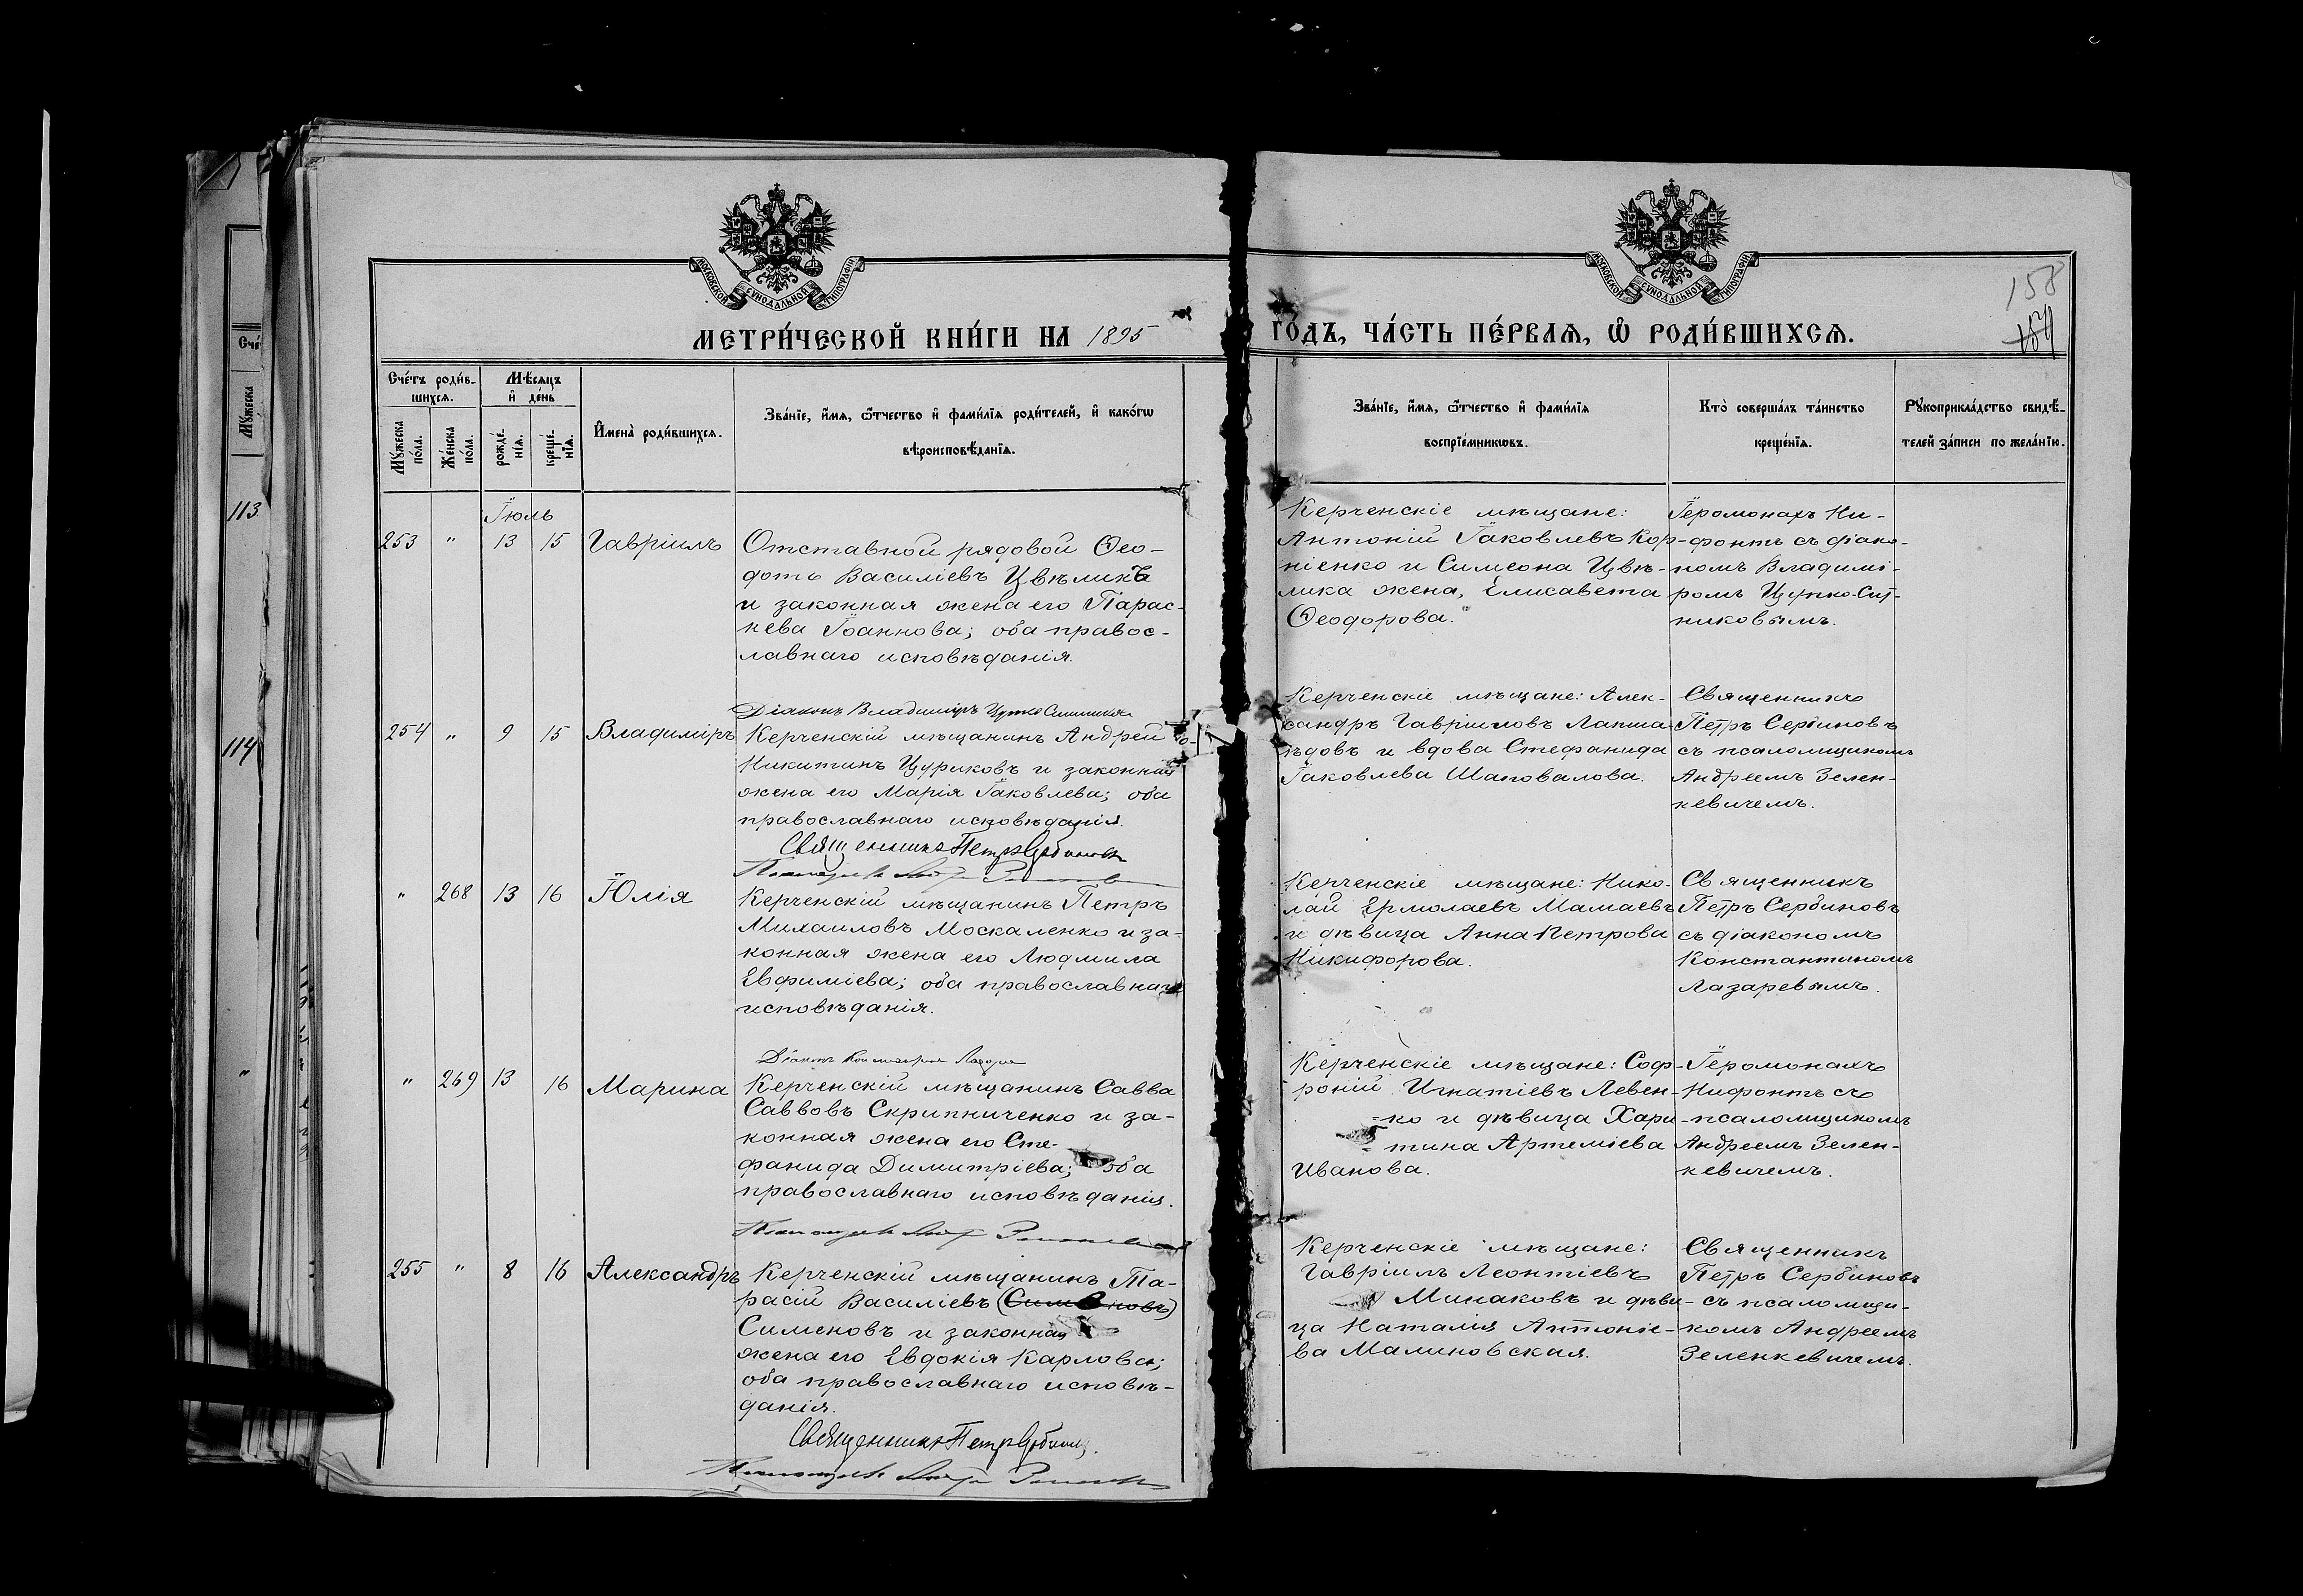 МОСКОВСКОЙ СУНОДАЛЬНОЙ ТИПОГРАФІИ
МОСКОВСКОЙ СУНОДАЛЬНОЙ ТИПОГРАФІИ
МЕТРИ́ЧЕСКОЙ КНИ́ГИ НА 1895
ГО́ДЪ, ЧА́СТЬ ПЕ́РВАЯ, Ѡ РОДИ́ВШИХСЯ.
158
Сче́тъ роди́в-
шихся.
Мѣ́сяцъ
и҆ де́нь
Мꙋ́жеска
по́ла.
Же́нска
по́ла.
рожде́-
нїѧ.
креще́-
нїѧ.
И҆мена̀ роди́вшихсѧ.
Зва́нїе, и҆́мѧ, ѻ҆́тчество и҆ фами́лїѧ роди́телей, и҆ како́гѡ
вѣроисповѣ́данїѧ.
Зва́нїе, и҆́мѧ, ѻ҆́тчество и҆ фами́лїѧ
воспрїе́мникѡвъ.
Кто̀ соверша́лъ та́инство
креще́нїѧ.
Рꙋкоприкла́дство свидѣ́-
телей за́писи по жела́нїю.
Сче́
Мꙋ́жеска
113
114
Іюль
253 " 13 15 Гавріилъ
Отставной рядовой Ѳео-
дотъ Василіевъ Цвѣликъ
и законная жена его Парас-
кева Іоаннова; оба правос-
лавнаго исповѣданія.
Діаконъ Владиміръ Цупко-Ситниковъ
Керченскіе мѣщане:
Антоній Іаковлевъ Кор-
ніенко и Симеона Цвѣ-
лика жена, Елисавета
Ѳеодорова.
Іеромонахъ Ни-
фонтъ съ діако-
номъ Владимі-
ромъ Цупко-Сит-
никовымъ.
254 " 9 15 Владиміръ
Керченскій мѣщанинъ Андрей
Никитинъ Цуриковъ и законная
жена его Марія Іаковлева; оба
православнаго исповѣданія.
Священникъ Петръ Сербиновъ
Керченскіе мѣщане: Алек-
сандръ Гавріиловъ Лапша-
ѣдовъ и вдова Стефанида
Іаковлева Шаповалова.
Священникъ
Петръ Сербиновъ
съ псаломщикомъ
Андреемъ Зелен-
кевичемъ.
" 268 13 16 Юлія
Керченскій мѣщанинъ Петръ
Михаиловъ Москаленко и за-
конная жена его Людмила
Евфиміева; оба православнаго
исповѣданія.
Діаконъ Константинъ Лазаревъ
Керченскіе мѣщане: Нико-
лай Ермолаевъ Мамаевъ
и дѣвица Анна Петрова
Никифорова.
Священникъ
Петръ Сербиновъ
съ діакономъ
Константиномъ
Лазаревымъ.
" 269 13 16 Марина
Керченскій мѣщанинъ Савва
Саввовъ Скрипниченко и за-
конная жена его Сте-
фанида Димитріева; оба
православнаго исповѣданія.
Керченскіе мѣщане: Соф-
роній Игнатіевъ Левен-
ко и дѣвица Хари-
тина Артеміева
Иванова.
Іеромонахъ
Нифонтъ съ
псаломщикомъ
Андреемъ Зелен-
кевичемъ.
255 " 8 16 Александръ
Керченскій мѣщанинъ Та-
расій Василіевъ
Сименовъ и законная
жена его Евдокія Карлова;
оба православнаго исповѣ-
данія.
Священникъ Петръ Сербиновъ.
Керченскіе мѣщане:
Гавріилъ Леонтіевъ
Минаковъ и дѣви-
ца Наталія Антоніе-
ва Малиновская.
Священникъ
Петръ Сербиновъ
съ псаломщи-
комъ Андреемъ
Зеленкевичемъ.